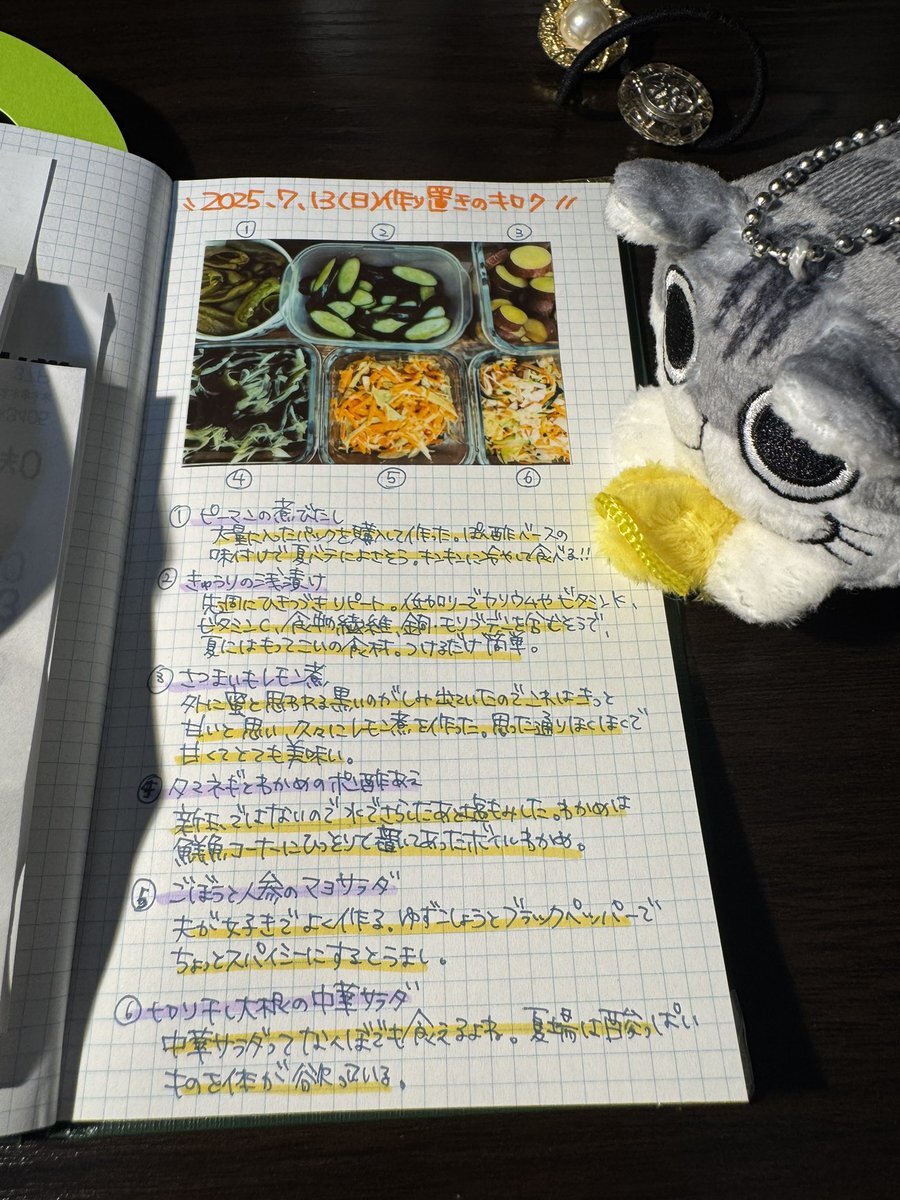 \\ 2025.7.13(日)作り置きのキロク //
① ② ③
④ ⑤ ⑥
① ピーマンの煮びたし
大量に入ったパックを購入して作った。ぽん酢ベースの
味付けで夏バテによさそう。キンキンに冷やして食べる!!
② きゅうりの浅漬け
先週にひきつづきリピート。低カロリーでカリウムやビタミンK、
ビタミンC、食物繊維、銅、モリブデンも含むそうで、
夏にはもってこいの食材。つけるだけ簡単。
③ さつまいもレモン煮
外に蜜と思われる黒いのがしみ出ていたのでこれはきっと
甘いと思い久々にレモン煮を作った。思った通りほくほくで
甘くてとても美味い。
④ タマネギとわかめのポン酢あえ
新玉ではないので水でさらしたあと塩もみした。わかめは
鮮魚コーナーにひっそりと置いてあったボイルわかめ。
⑤ ごぼうと人参のマヨサラダ
夫が好きでよく作る。ゆずこしょうとブラックペッパーで
ちょっとスパイシーにするとうまい。
⑥ 切り干し大根の中華サラダ
中華サラダってなんぼでも食えるよね。夏場は酸っぱい
ものを体が欲っている。